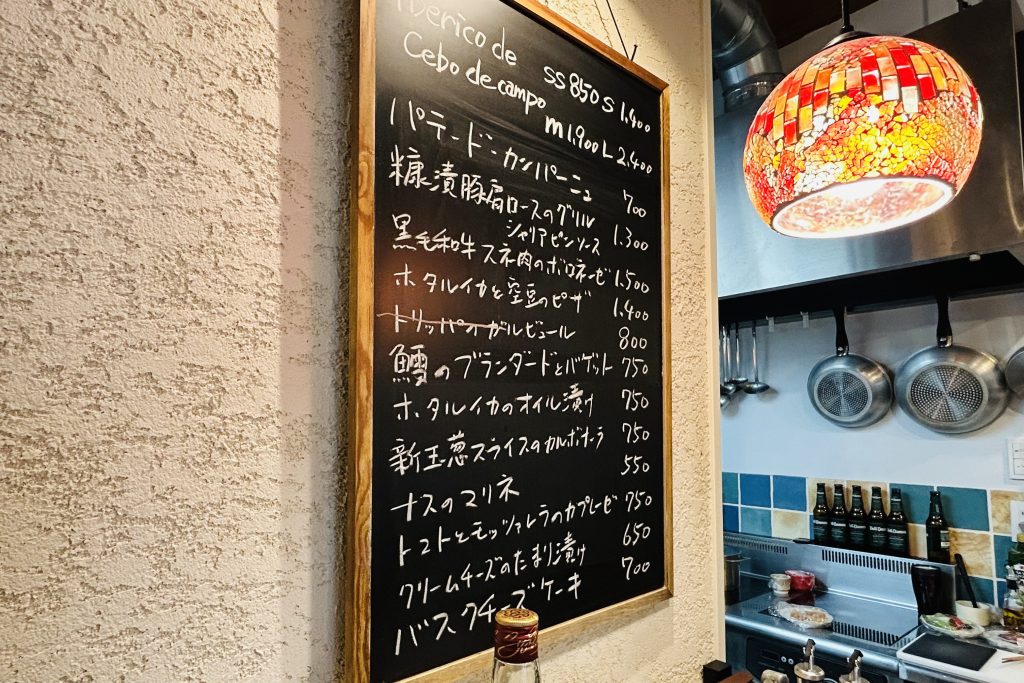 Iberico de
Cebo de campo SS 850 S 1.400
m 1.900 L 2.400
パテ・ド・カンパーニュ 700
糠漬豚肩ロースのグリル
シャリアピンソース 1.300
黒毛和牛スネ肉のボロネーゼ 1.500
ホタルイカと空豆のピザ 1.400
トリッパ オ ガルビュール 800
鱈のブランダードとバゲット 750
ホタルイカのオイル漬け 750
新玉葱スライスのカルボナーラ 750
ナスのマリネ 550
トマトとモッツァレラのカプレーゼ 750
クリームチーズのたまり漬け 650
バスクチーズケーキ 700